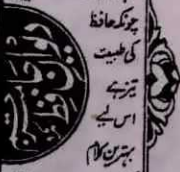 چونکہ حافظ
کی طبیعت
تیز ہے
اس لیے
بہترین کلام
دیوان حافظ